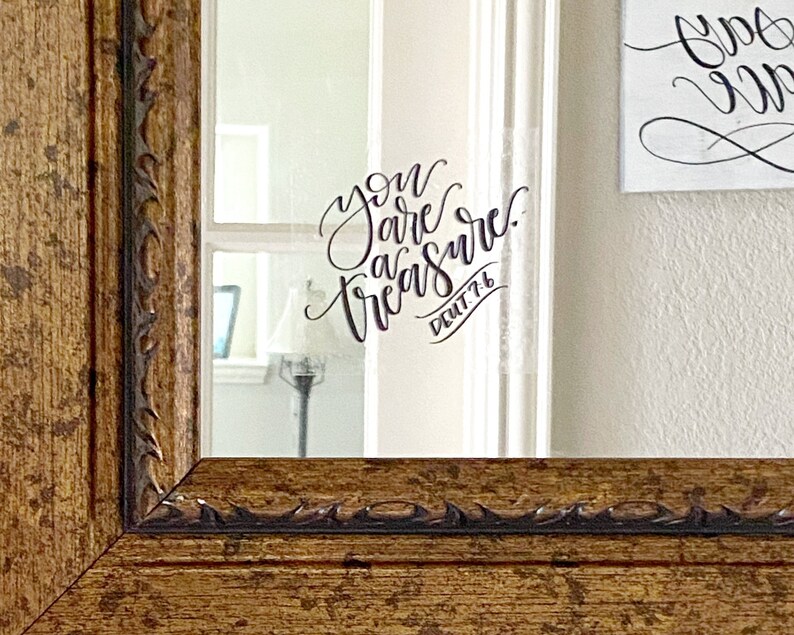 you
are
a
treasure.
DEUT. 7:6
say